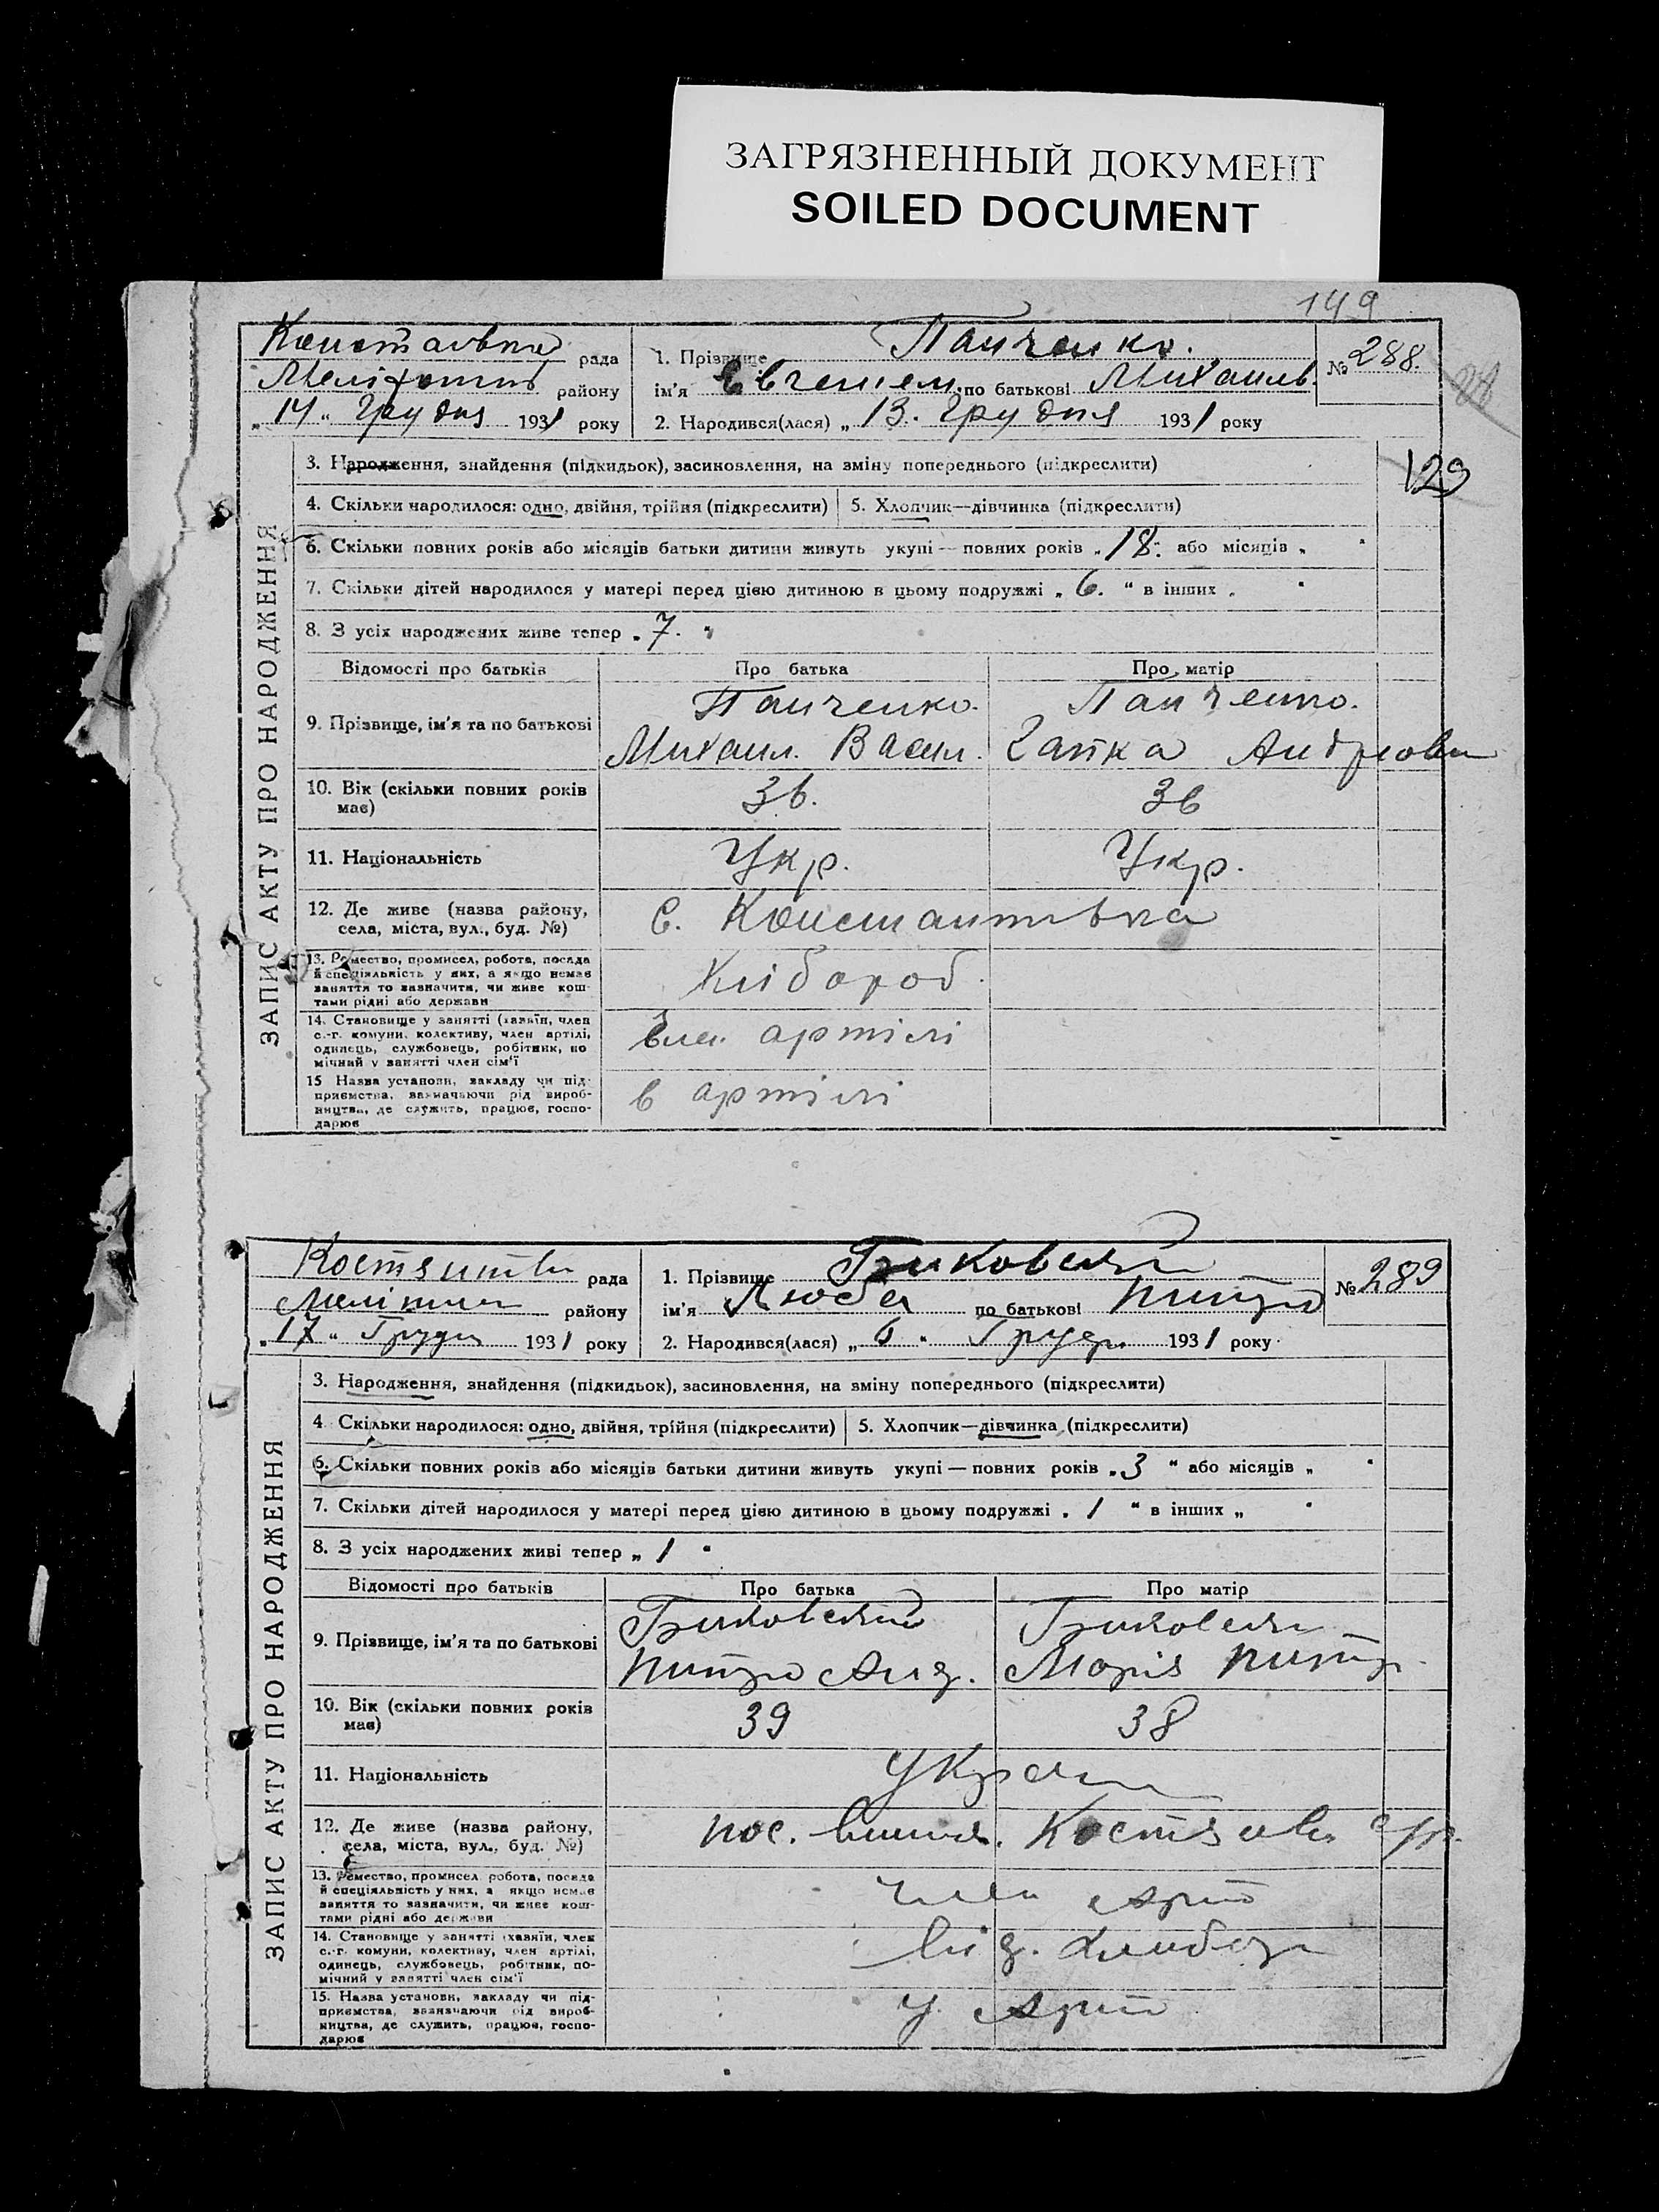 ЗАГРЯЗНЕННЫЙ ДОКУМЕНТ
SOILED DOCUMENT
149
рада
району
„14“ Грудня 1931 року
1. Прізвище Панченко.
ім'я по батькові Михаилв.
2. Народився(лася) „13. Грудня 1931 року
№ 288.
129
ЗАПИС АКТУ ПРО НАРОДЖЕННЯ
3. Народження, знайдення (підкидьок), засиновлення, на зміну попереднього (підкреслити)
4. Скільки народилося: одно, двійня, трійня (підкреслити) 5. Хлопчик—дівчинка (підкреслити)
6. Скільки повних років або місяців батьки дитини живуть укупі — повних років „18“ або місяців „ “
7. Скільки дітей народилося у матері перед цією дитиною в цьому подружжі „6.“ в інших „ “
8. З усіх народжених живе тепер „7.“
Відомості про батьків Про батька Про матір
9. Прізвище, ім'я та по батькові
Панченко. Панченко.
Михаил. Васил. Андреовн
10. Вік (скільки повних років має)
36. 36
11. Національність Укр. Укр.
12. Де живе (назва району, села, міста, вул., буд. №)
С. Константивка
13. Ремество, промисел, робота, посада
й спеціяльність у них, а якщо немає
заняття то зазначити, чи живе кош-
тами рідні або держави
Хлібороб.
14. Становище у занятті (хазяїн, член
с.-г. комуни, колективу, член артілі,
одинець, службовець, робітник, по
мічний у занятті член сім'ї
член артілі
15 Назва установи, закладу чи під-
приємства, зазначаючи рід вироб-
ництва, де служить, працює, госпо-
дарює
в артілі
рада
району
„17“ 1931 року
1. Прізвище
ім'я Люба по батькові
2. Народився(лася) „6“ 1931 року
№ 289
ЗАПИС АКТУ ПРО НАРОДЖЕННЯ
3. Народження, знайдення (підкидьок), засиновлення, на зміну попереднього (підкреслити)
4 Скільки народилося: одно, двійня, трійня (підкреслити) 5. Хлопчик—дівчинка (підкреслити)
6. Скільки повних років або місяців батьки дитини живуть укупі — повних років „3“ або місяців „ “
7. Скільки дітей народилося у матері перед цією дитиною в цьому подружжі „1“ в інших „ “
8. З усіх народжених живі тепер „1“
Відомості про батьків Про батька Про матір
9. Прізвище, ім'я та по батькові
Марія
10. Вік (скільки повних років має)
39 38
11. Національність
12. Де живе (назва району, села, міста, вул., буд. №)
пос.
13. Ремество, промисел, робота, посада
й спеціяльність у них, а якщо немає
заняття то зазначити, чи живе кош-
тами рідні або держави
член
14. Становище у занятті (хазяїн, член
с.-г. комуни, колективу, член артілі,
одинець, службовець, робітник, по-
мічний у занятті член сім'ї
15. Назва установи, закладу чи під-
приємства, зазначаючи рід вироб-
ництва, де служить, працює, госпо-
дарює
у